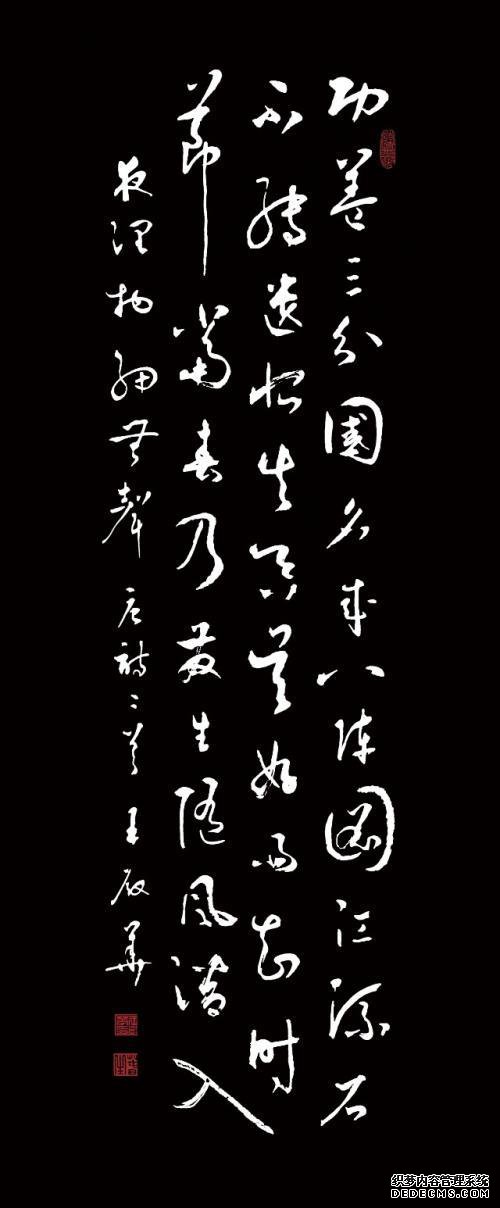 功盖三分國名成八陣圖江流石
不轉遺恨失吞吴好雨知時
節當春乃發生隨風潛入
夜潤物細無聲 唐詩二首 王華
织梦内容管理系统
DEDECMS.COM